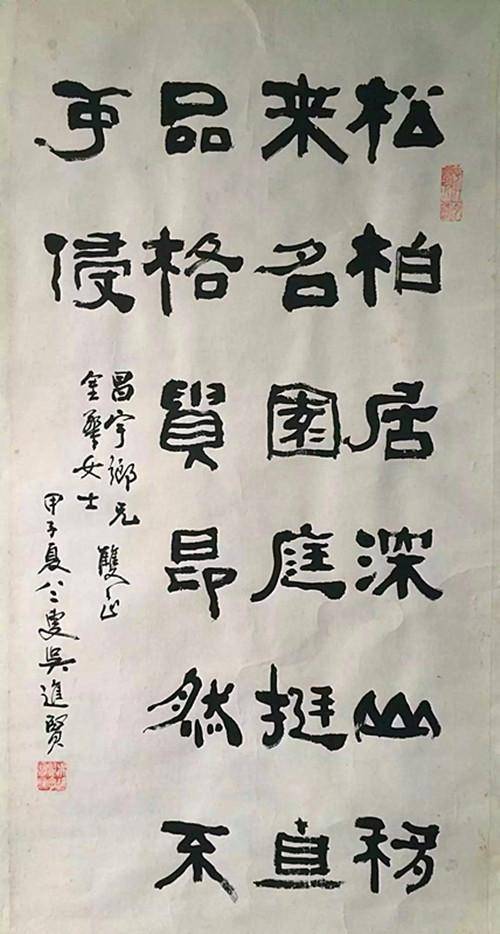 松柏居深山移
来名園庭挺直
品格貴昂然不
可侵
昌宇鄉兄
金華女士
雙正
甲子夏八二叟吳進賢